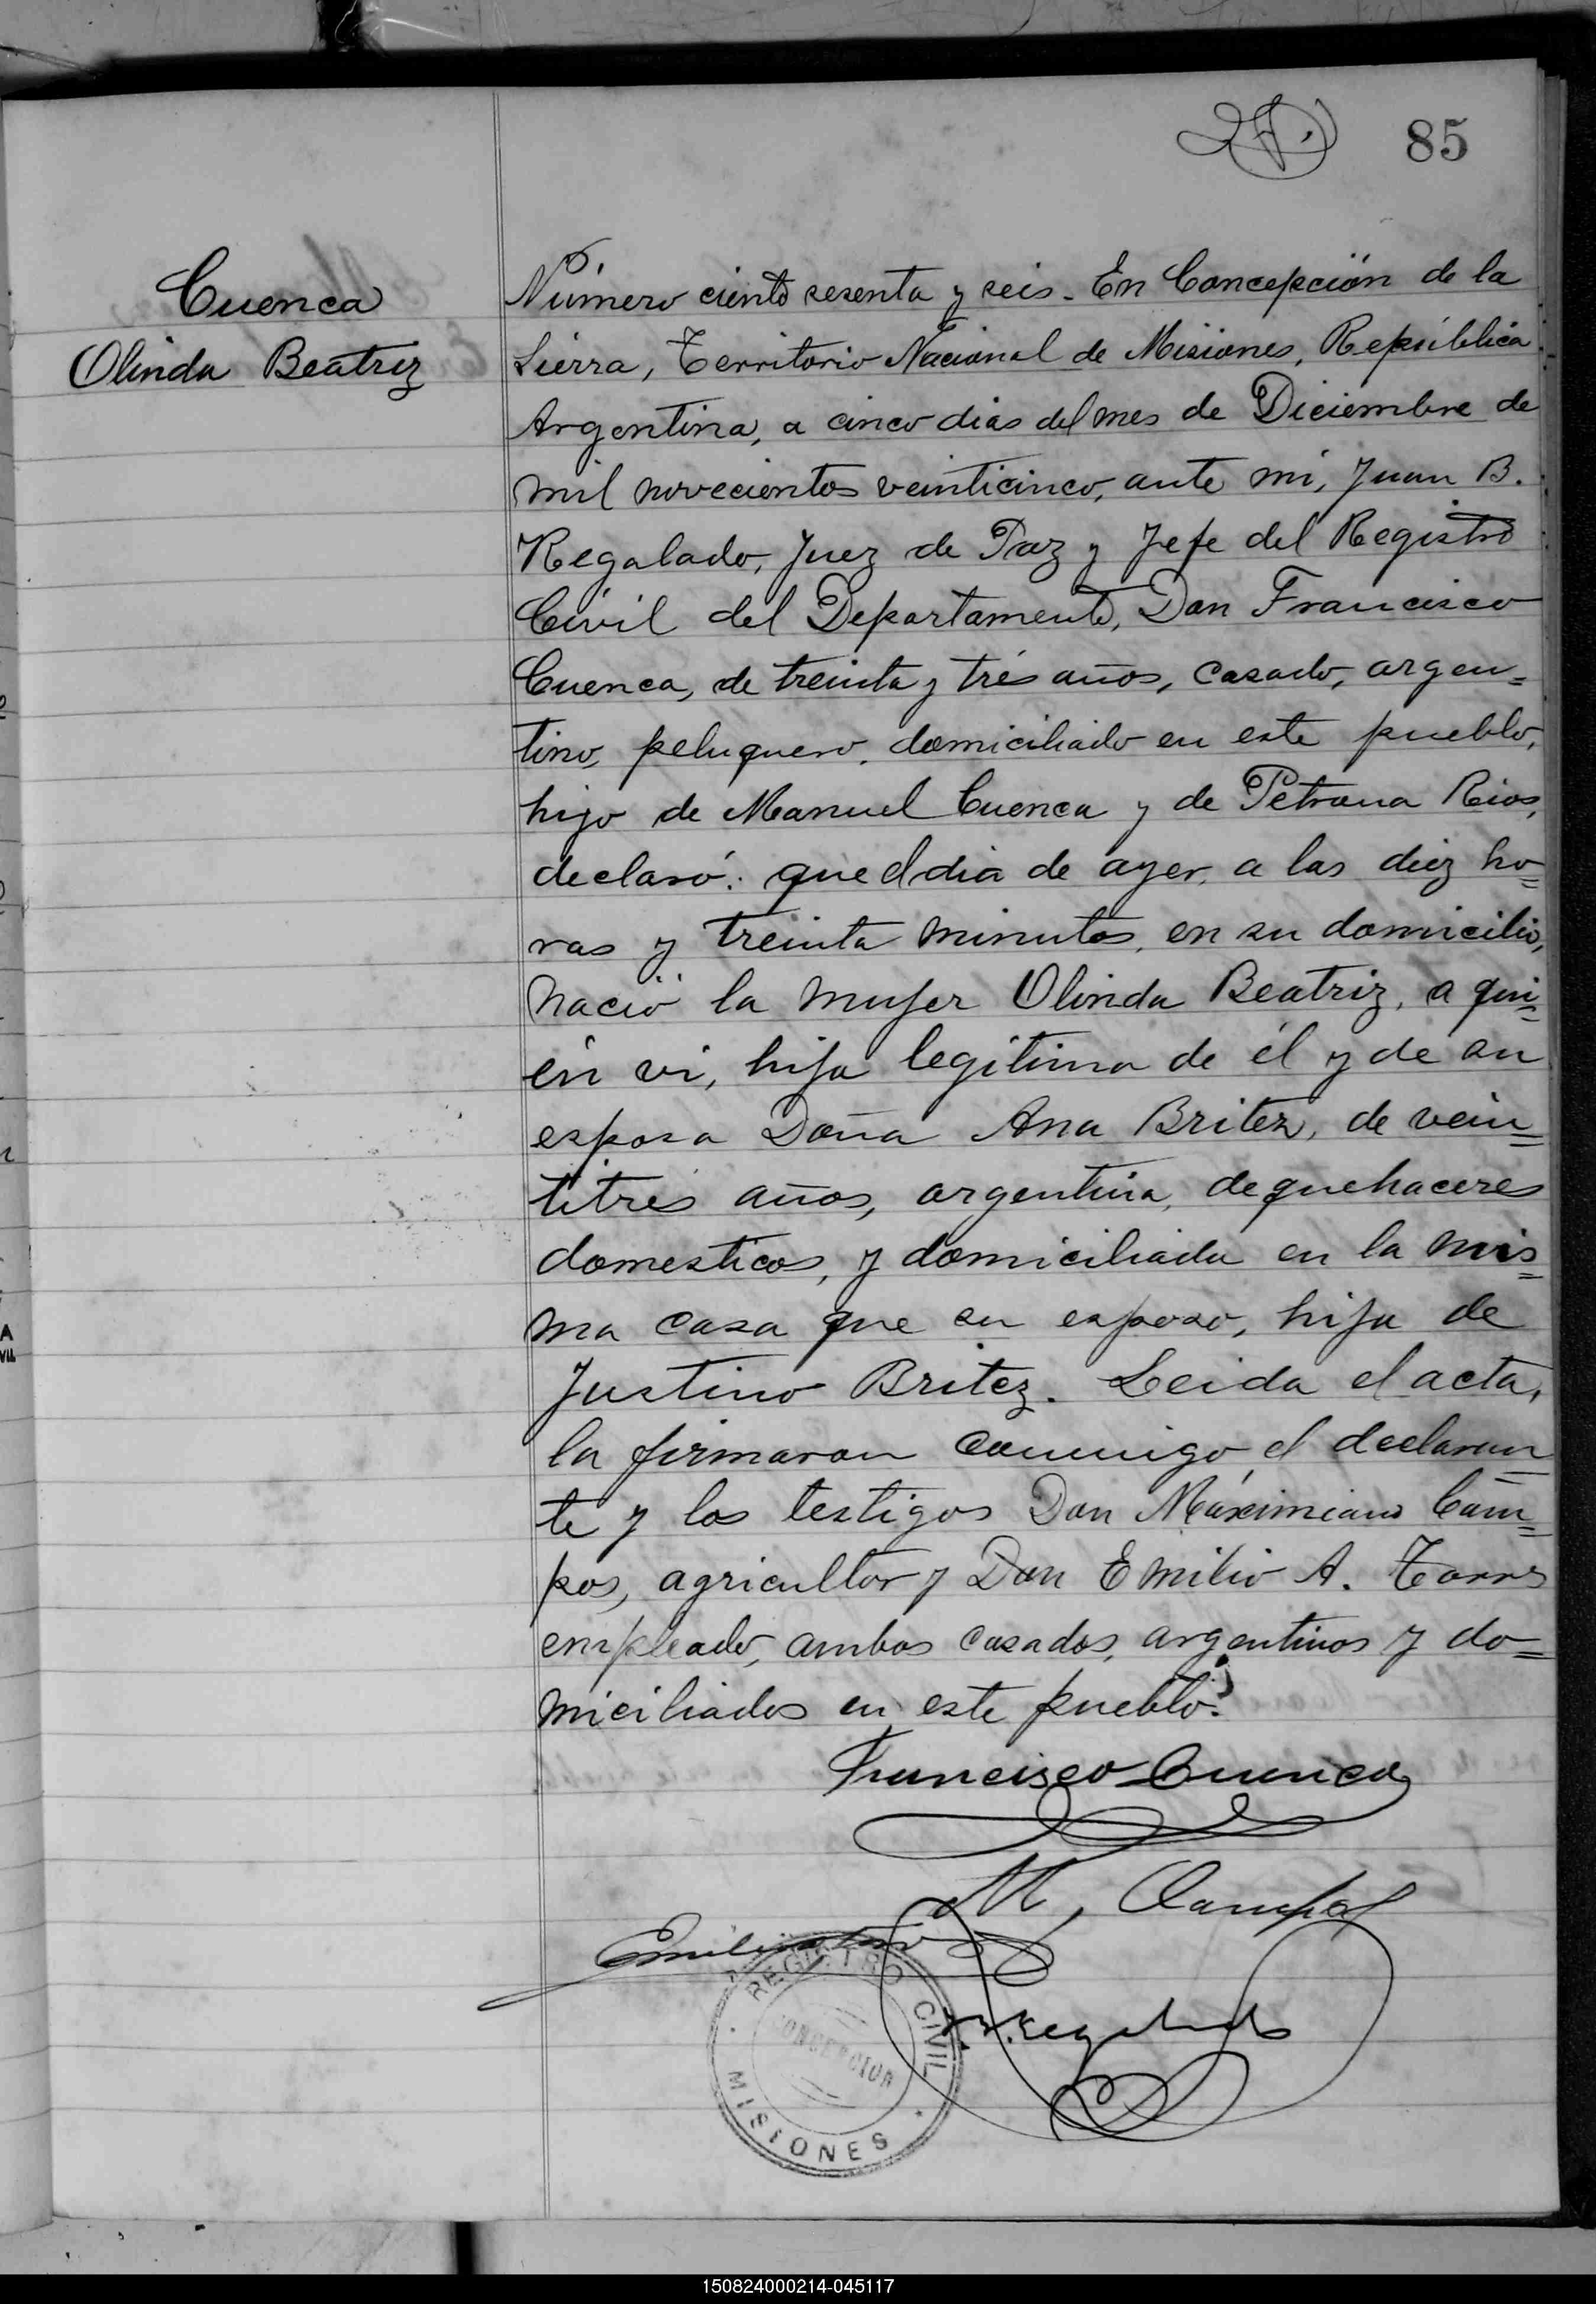 85
Cuenca
Olinda Beatriz
Número ciento sesenta y seis. En Concepción de la
Sierra, Territorio Nacional de Misiones, República
Argentina, a cinco dias del mes de Diciembre de
mil novecientos veinticinco, ante mi, Juan B.
Regalado, Juez de Paz y Jefe del Registro
Civil del Departamento, Don Francisco
Cuenca, de treinta y tres años, casado, argen=
tino, peluquero, domiciliado en este pueblo,
hijo de Manuel Cuenca y de Petrona Rios,
declaró: que el dia de ayer, a las diez ho=
ras y treinta minutos, en su domicilio,
nació la mujer Olinda Beatriz, a qui=
én vi, hija legitima de él y de su
esposa Doña Ana Britez, de vein=
titrés años, argentina, de quehaceres
domesticos, y domiciliada en la mis=
ma casa que su esposo, hija de
Justino Britez. Leida el acta,
la firmaron conmigo el declaran=
te y los testigos Don Máximiano Cam=
pos, agricultor y Don Emilio A. Torres
empleado, ambos casados, argentinos y do=
miciliados en este pueblo.
Francisco Cuenca
M. Campos
Regalado
REGISTRO CIVIL
CONCEPCION
MISIONES
150824000214-045117